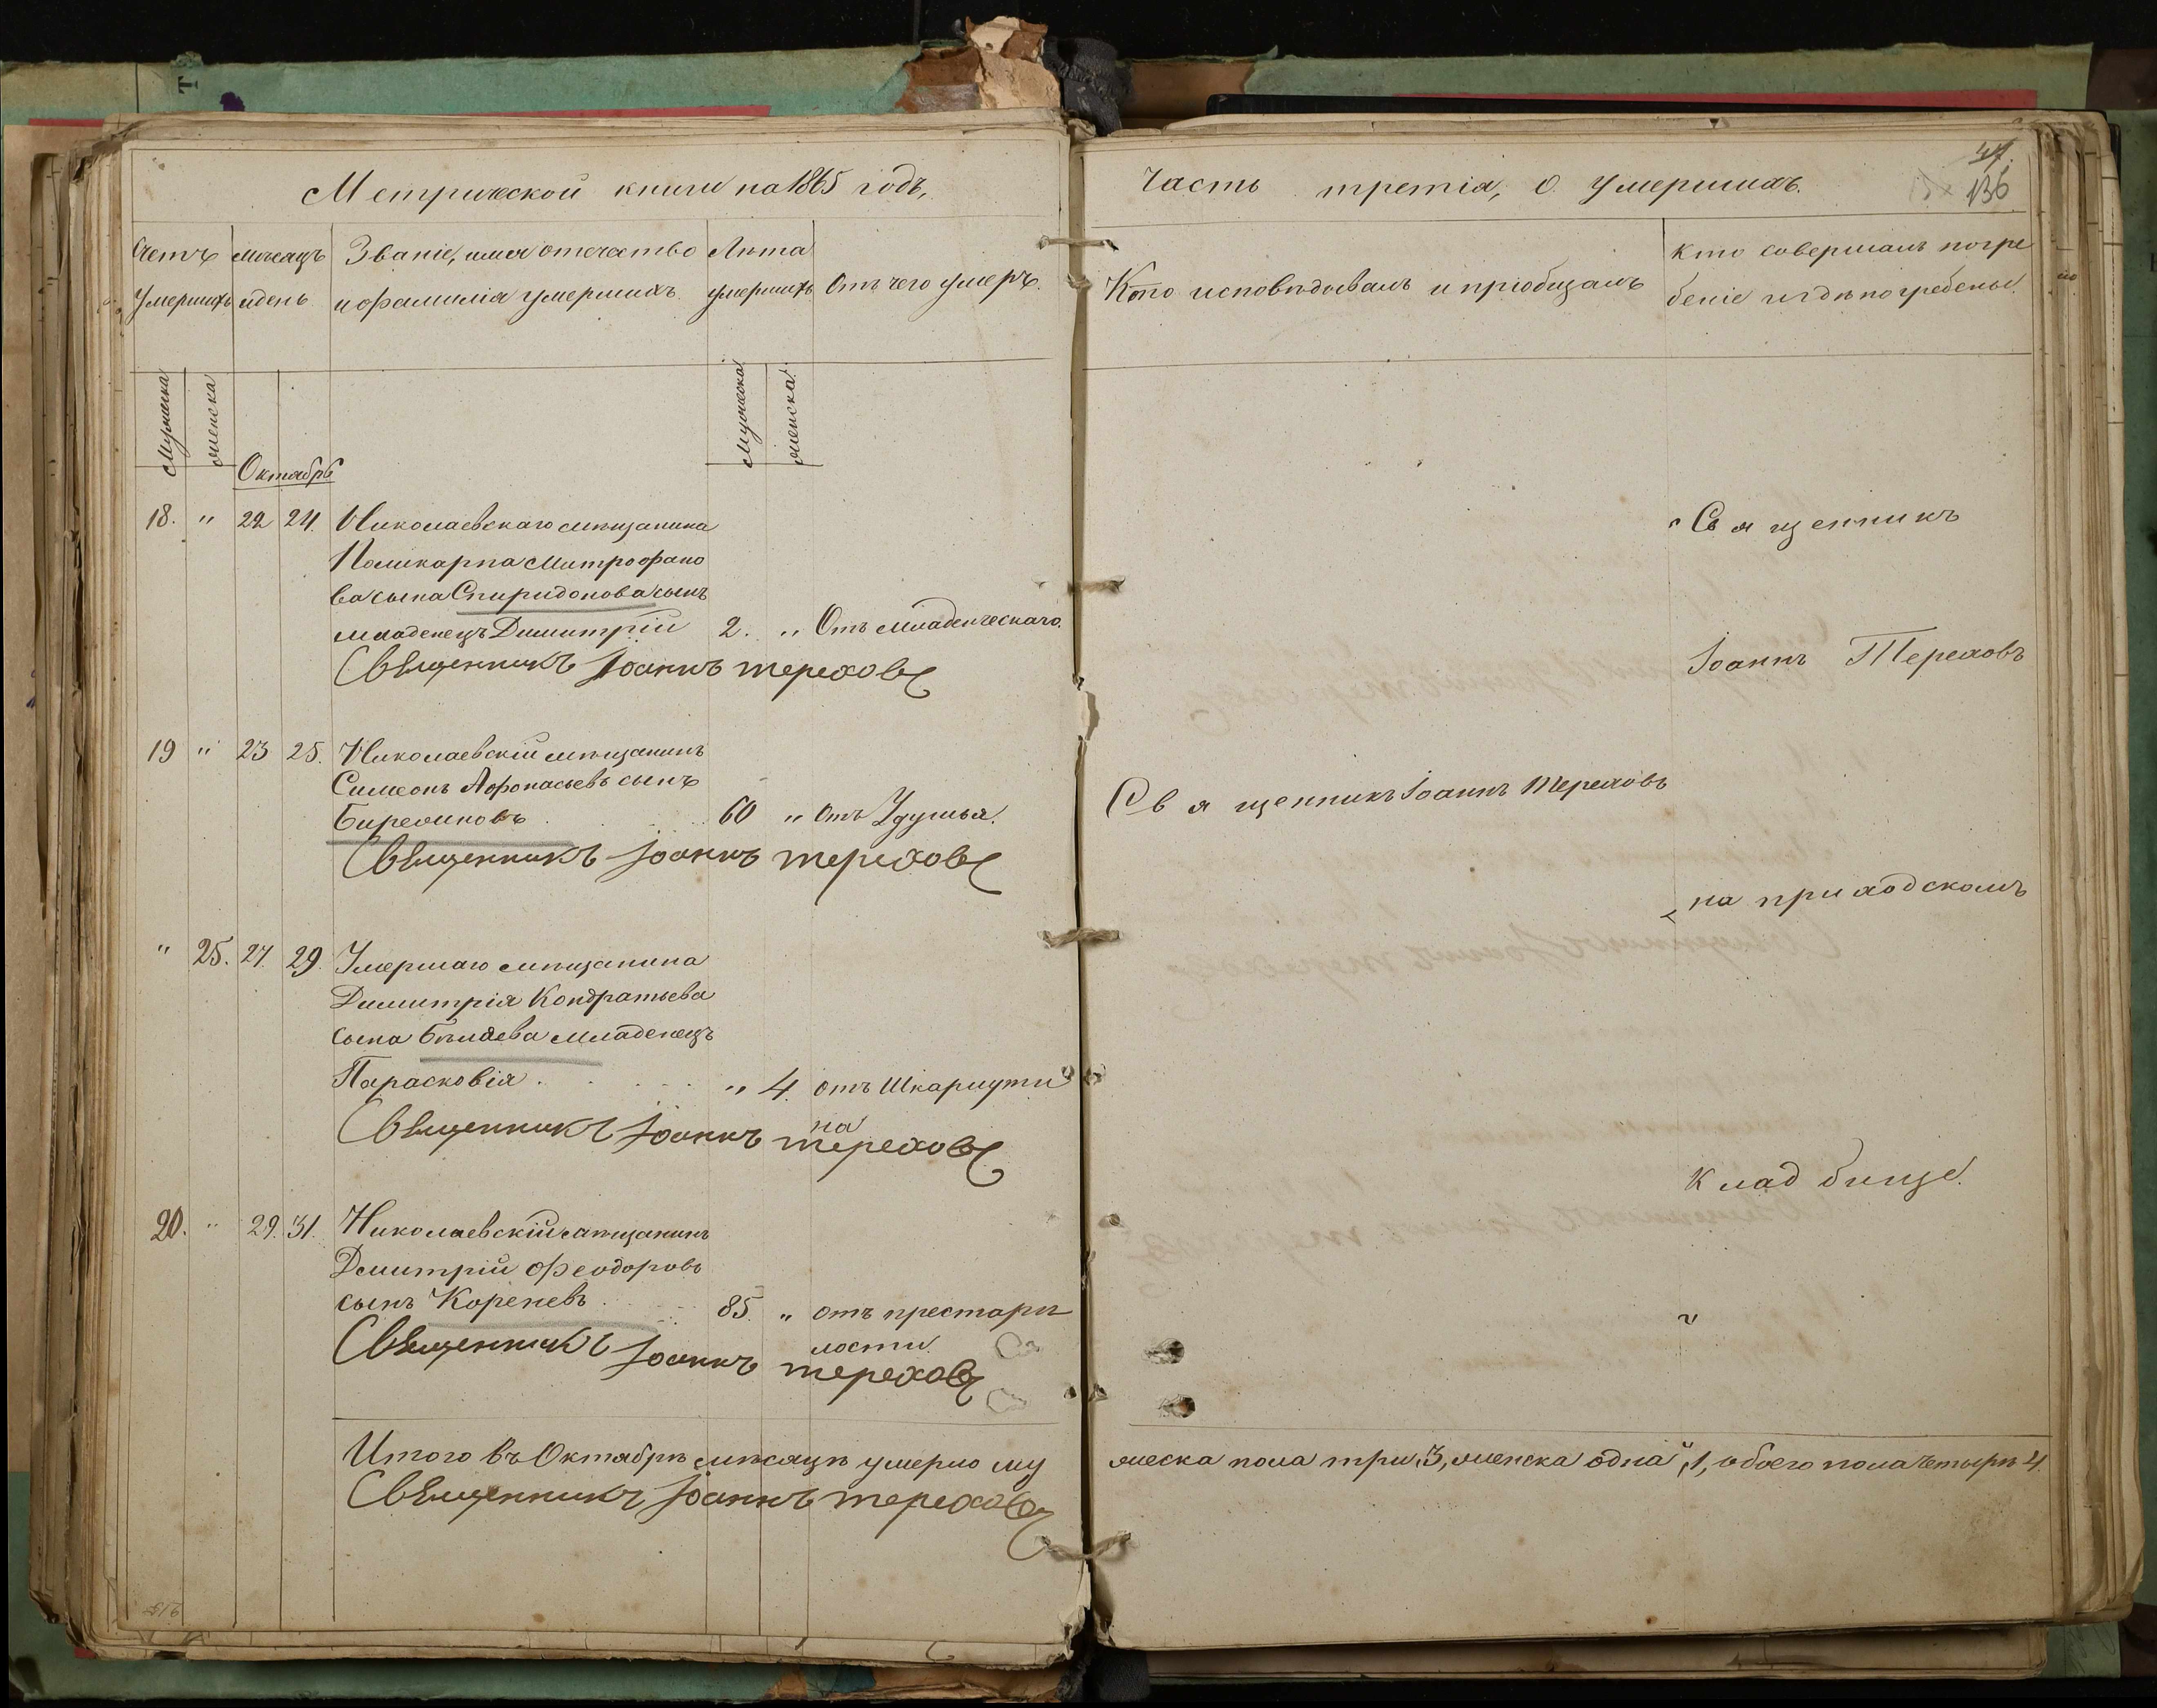 Метрической книги на 1865 годъ,
Счетъ умершихъ
мѣсяцъ и день
Званіе, имя отечество и фамилія умершихъ
Лѣта умершихъ
Отъ чего умеръ.
Мужеска
женска
Мужеска
женска
Октябрь
18. " 22 24. Николаевскаго мѣщанина
Поликарпа Митрофано
ва сына Спиридонова сынъ
младенецъ Димитрій 2. " Отъ младенческаго.
Священникъ Іоаннъ Тереховъ
19 " 23 25. Николаевскій мѣщанинъ
Симеонъ Афонасьевъ сынъ
60 " отъ Удушья.
Священникъ Іоаннъ Тереховъ
" 25. 27. 29. Умершаго мѣщанина
Димитрія Кондратьева
сына Бѣляева младенецъ
Парасковія . " 4. отъ Шкарлути
на
Священникъ Іоаннъ Тереховъ
20. " 29. 31. Николаевскій мѣщанинъ
Димитрій Феодоровъ
сынъ Кореневъ . 85. " отъ престарѣ
лости.
Священникъ Іоаннъ Тереховъ
Итого въ Октябрѣ мѣсяцѣ умерло му
Священникъ Іоаннъ Тереховъ
Часть третія, о умершихъ.
136
Кто исповѣдывалъ и пріобщалъ
Кто совершалъ погре
беніе и гдѣ погребены.
Священникъ
Іоаннъ Тереховъ
Священникъ Іоаннъ Тереховъ
на приходскомъ
кладбище.
"
жеска пола три, 3, женска одна, 1, обоего пола четырѣ 4.